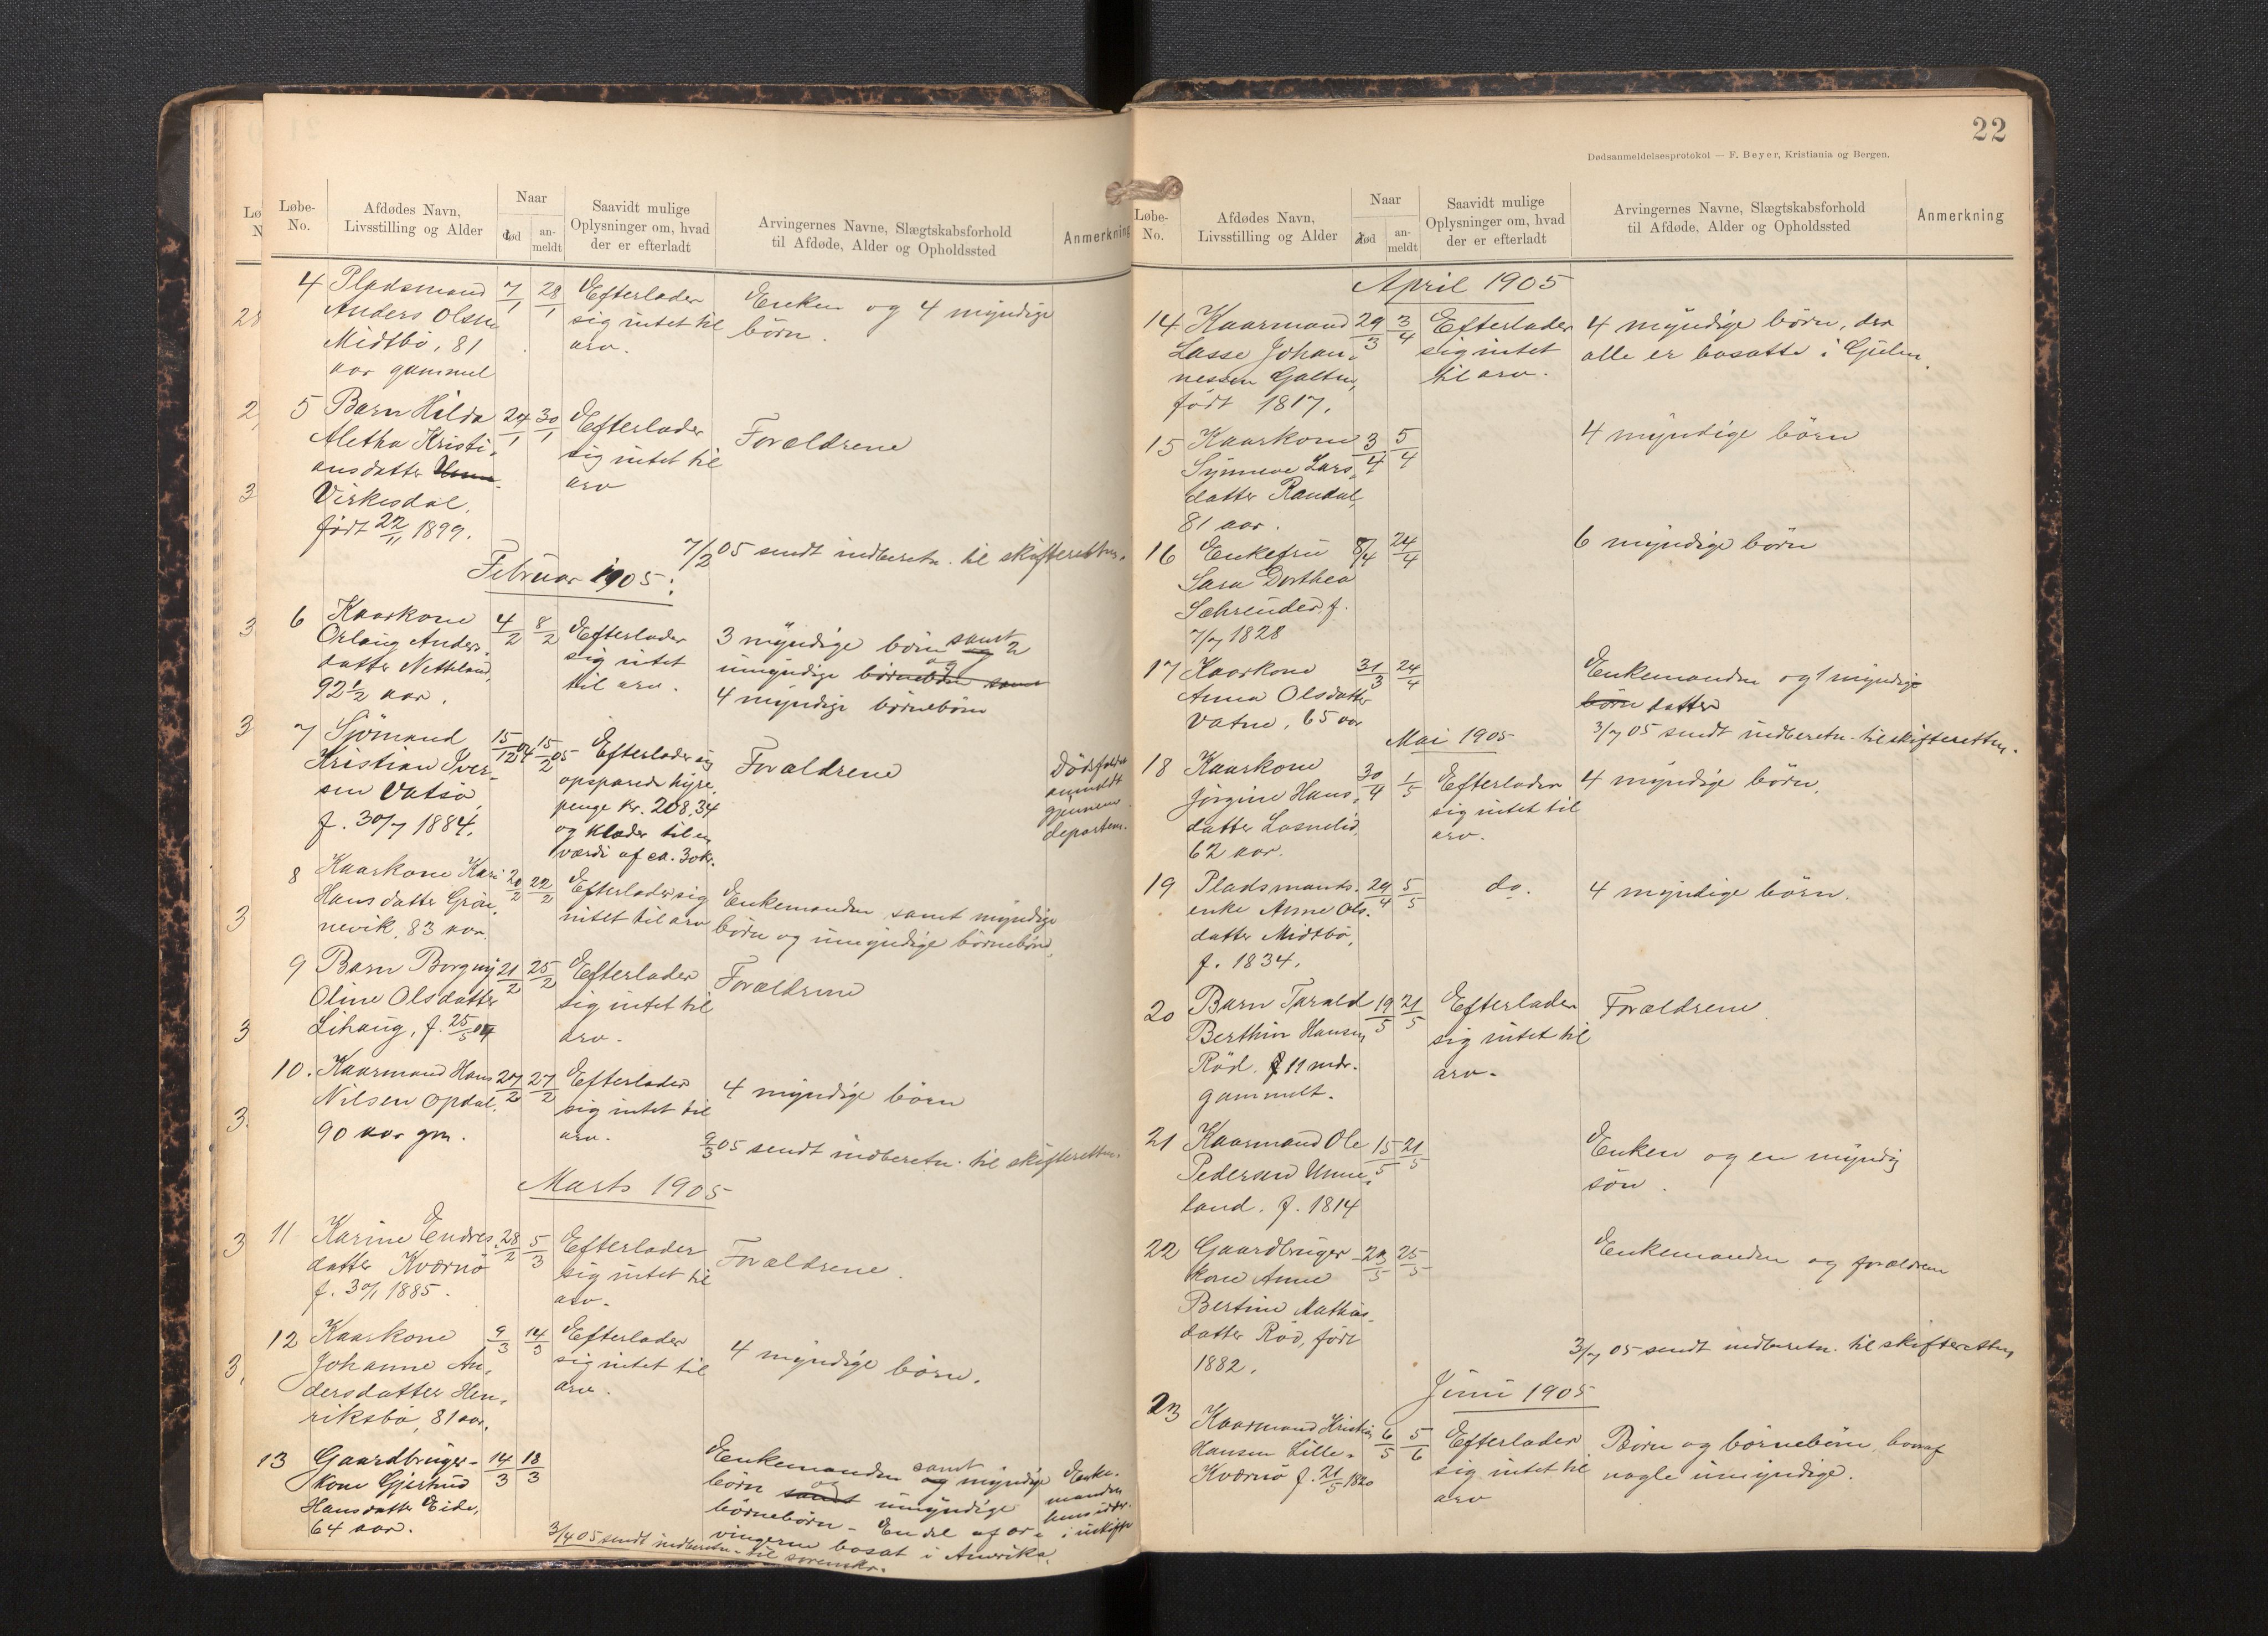 Løbe-
No.
Afdødes Navn,
Livsstilling og Alder
Naar
død
an-
meldt
Saavidt mulige
Oplysninger om, hvad
der er efterladt
Arvingernes Navne, Slægtskabsforhold
til Afdøde, Alder og Opholdssted
Anmerkning
4 Pladsmand 7/1 28/1 Efterlader Enken og 4 myndige
Anders Olsen sig intet til børn.
Midtbø, 81 arv.
aar gammel
5 Barn Hilda 24/1 30/1 Efterlader Forældrene
Aletha Kristi- sig intet til
ansdatter arv
Virkesdal,
født 22/11 1899.
7/2 05 sendt indberetn. til skifteretten.
Februar 1905:
6 Kaarkone 4/2 8/2 Efterlader 3 myndige børn og samt 2
Orlaug Anders- sig intet umyndige børnebørn samt og
datter Nettland, til arv. 4 myndige børnebørn
92 1/2 aar.
7 Sjømand 15/12 04 15/2 05 Efterlader sig Forældrene Dødsfaldet
Kristian Iver- opsparede hyre- anmeldt
sen Vatsø, penge kr. 208,34 gjennem
f. 30/7 1884. og klæder til en departem.
værdi af ca. 30 kr.
8 Kaarkone Kari 20/2 22/2 Efterlader sig Enkemanden samt myndige
Hansdatter Grøn- intet til arv børn og umyndige børnebørn,
nevik, 83 aar.
9 Barn Borgny 21/2 25/2 Efterlader Forældrene
Oline Olsdatter sig intet til
Lihaug, f. 25/5 04 arv.
10. Kaarmand Hans 27/2 27/2 Efterlader 4 myndige børn
Nilsen Opdal, sig intet til
90 aar gm. arv.
9/3 05 sendt indberetn. til skifteretten.
Marts 1905
11 Karine Endres- 28/2 5/3 Efterlader Forældrene.
datter Kværnø sig intet til
f. 30/1 1885. arv.
12 Kaarkone 9/3 14/3 Efterlader 4 myndige børn.
Johanne An- sig intet til
dersdatter Hen- arv.
riksbø, 81 aar.
13 Gaardbruger- 14/3 18/3 Enkemanden og samt myndige Enke-
kone Gjertrud børn samt og umyndige manden
Hansdatter Eide, børnebørn - En del af ar-
64 aar. vingerne bosat i Amerika.
3/4 05 sendt indberetn. til sorenskr.
22
Dødsanmeldelsesprotokol — F. Beyer, Kristiania og Bergen.
Løbe-
No.
Afdødes Navn,
Livsstilling og Alder
Naar
død
an-
meldt
Saavidt mulige
Oplysninger om, hvad
der er efterladt
Arvingernes Navne, Slægtskabsforhold
til Afdøde, Alder og Opholdssted
Anmerkning
April 1905
14 Kaarmand 29/3 3/4 Efterlader 4 myndige børn, der
Lasse Johan- sig intet alle er bosatte i Gulen.
nessen Galten, til arv.
født 1817.
15 Kaarkone 3/4 5/4 4 myndige børn
Synneve Lars-
datter Randal,
81 aar.
16 Enkefru 8/4 24/4 6 myndige børn
Sara Dorthea
f.
7/7 1828
17 Kaarkone 31/3 24/4 Enkemanden og 1 myndig
Anna Olsdatter børn datter
Vatne, 65 aar 3/7 05 sendt indberetn. til skifteretten.
Mai 1905
18 Kaarkone 30/4 1/5 Efterlader 4 myndige børn.
Jørgine Hans- sig intet til
datter Losnelid, arv.
62 aar.
19 Pladsmands- 29/4 5/5 do. 4 myndige børn.
enke Anne Ols-
datter Midtbø,
f. 1834.
20 Barn Tarald 19/5 21/5 Efterlader Forældrene
Berthin Hansen sig intet til
Rød. 11 mdr. arv.
gammelt.
21 Kaarmand Ole 15/5 21/5 Enken og en myndig
Pedersen Unne- søn.
land. f. 1814
22 Gaardbruger- 23/5 25/5 Enkemanden og forældrene
kone Anne
Bertine Mathias-
datter Rød, født
1882.
3/7 05 sendt indberetn. til skifteretten
Juni 1905
23 Kaarmand Kristian 6/5 5/6 Efterlader Børn og børnebørn, hvoraf
Hansen Lille- sig intet til nogle umyndige.
Kværnø f. 21/5 1820 arv